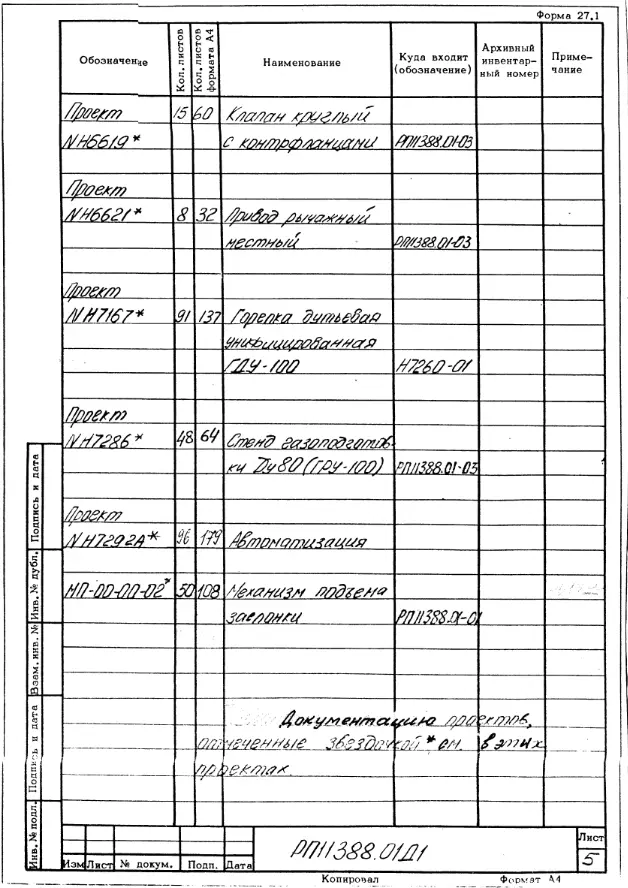 Форма 27.1
Обозначение Кол. листов Кол. листов формата А4 Наименование Куда входит (обозначение) Архивный инвентарный номер Примечание
Проект 15 60 Клапан круглый
NН6619* с контрфланцами РП11388.01-03
Проект
NН6621* 8 32 Привод рычажный
местный РП11388.01-03
Проект
NН7167* 91 137 Горелка дутьевая
унифицированная
ГДУ-100 Н7260-01
Проект
NН7286* 48 64 Стенд газоподготов-
ки Ду80 (ГРУ-100) РП11388.01-03
Проект
NН7292А* 96 179 Автоматизация
МП-00-00-02* 50 108 Механизм подъема
заслонки РП11388.01-01
Документацию проектов,
отмеченные звездочкой * см. в этих
проектах.
Подпись и дата
Инв. № дубл.
Взам. инв. №
Подпись и дата
Инв. № подл.
РП11388.01Д1
Лист
5
Изм Лист № докум. Подп. Дата
Копировал Формат А4